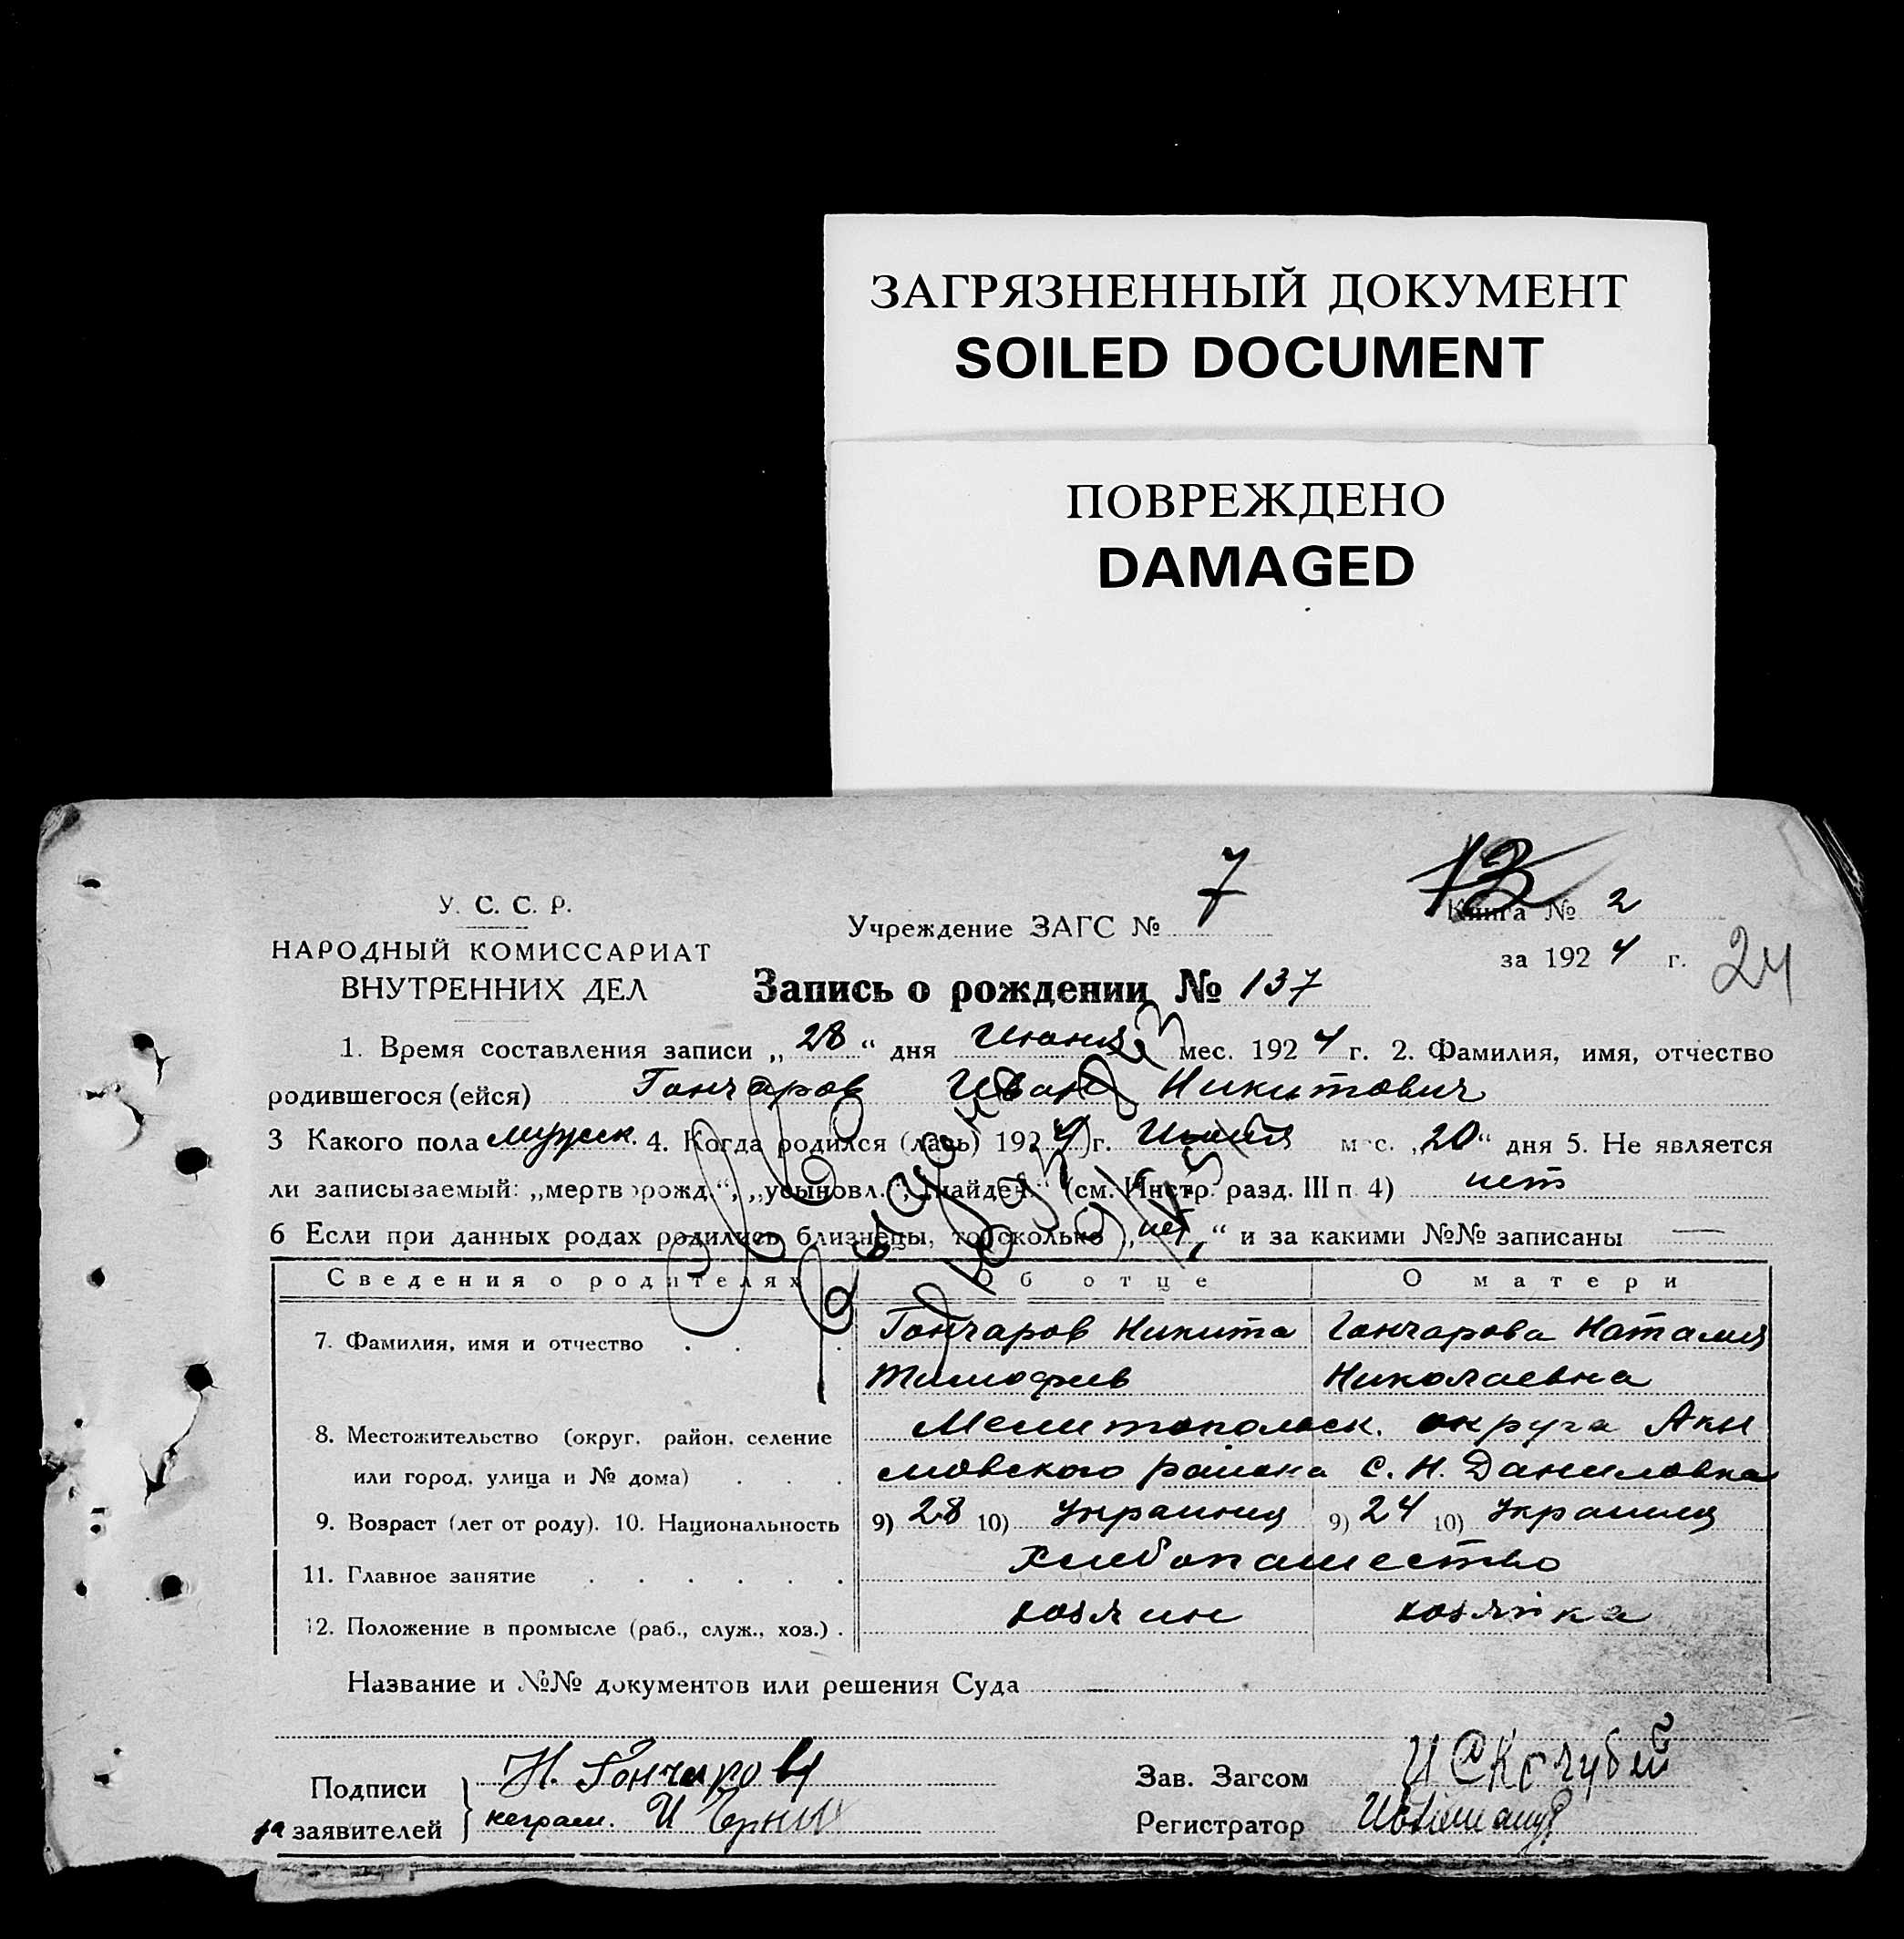 ЗАГРЯЗНЕННЫЙ ДОКУМЕНТ
SOILED DOCUMENT
ПОВРЕЖДЕНО
DAMAGED
У. С. С. Р.
НАРОДНЫЙ КОМИССАРИАТ
ВНУТРЕННИХ ДЕЛ
Учреждение ЗАГС № 7
13
Книга № 2
за 1924 г.
24
Запись о рождении № 137
1. Время составления записи „28“ дня Июня мес. 1924 г. 2. Фамилия, имя, отчество
родившегося (ейся) Гончаров Иван Никитович
3 Какого пола мужск. 4. Когда родился (лась) 1924 г. Июня мес. „20“ дня 5. Не является
ли записываемый: „мертворожд.“, „усыновл.“, „найден.“ (см. Инстр. разд. III п. 4) нет
6 Если при данных родах родились близнецы, то сколько „нет“ и за какими №№ записаны —
Сведения о родителях Об отце О матери
7. Фамилия, имя и отчество Гончаров Никита Гончарова Наталия
Тимофив Николаевна
8. Местожительство (округ, район, селение Мелитопольск. округа Аки
или город, улица и № дома) мовского района с. Н. Даниловка
9. Возраст (лет от роду). 10. Национальность 9) 28 10) Украинец 9) 24 10) Украинец
11. Главное занятие Хлебопашество
12. Положение в промысле (раб., служ., хоз.) хозяин хозяйка
Название и №№ документов или решения Суда —
Подписи Н. Гончаров Зав. Загсом И С Кочубей
за заявителей неграм. И Регистратор